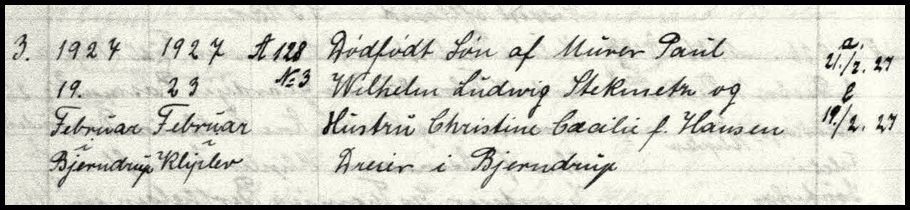 3. 1927 1927 A 128 Dødfødt Søn af Murer Paul a.
19. 23 № 3 Wilhelm Ludwig Stekmetz og 21./2. 27
Februar Februar Hustru Christine Cæcilie f. Hansen 19./2. 27
Bjerndrup Kliplev Dreier i Bjerndrup